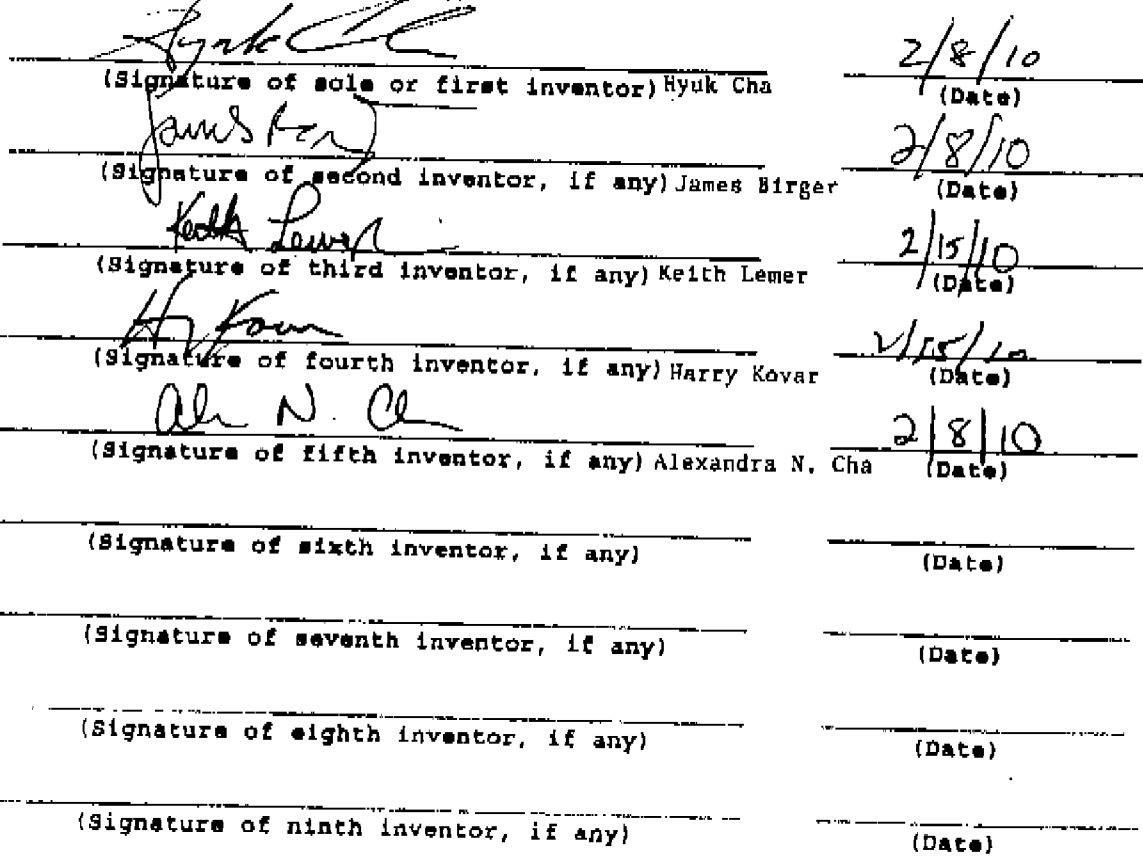 Hyuk Cha 2/8/10
(Signature of sole or first inventor) Hyuk Cha (Date)
James 2/8/10
(Signature of second inventor, if any) James Birger (Date)
Keith Lemer 2/15/10
(Signature of third inventor, if any) Keith Lemer (Date)
Kovar 2/15/10
(Signature of fourth inventor, if any) Harry Kovar (Date)
N. 2/8/10
(Signature of fifth inventor, if any) Alexandra N. Cha (Date)
(Signature of sixth inventor, if any) (Date)
(Signature of seventh inventor, if any) (Date)
(Signature of eighth inventor, if any) (Date)
(Signature of ninth inventor, if any) (Date)